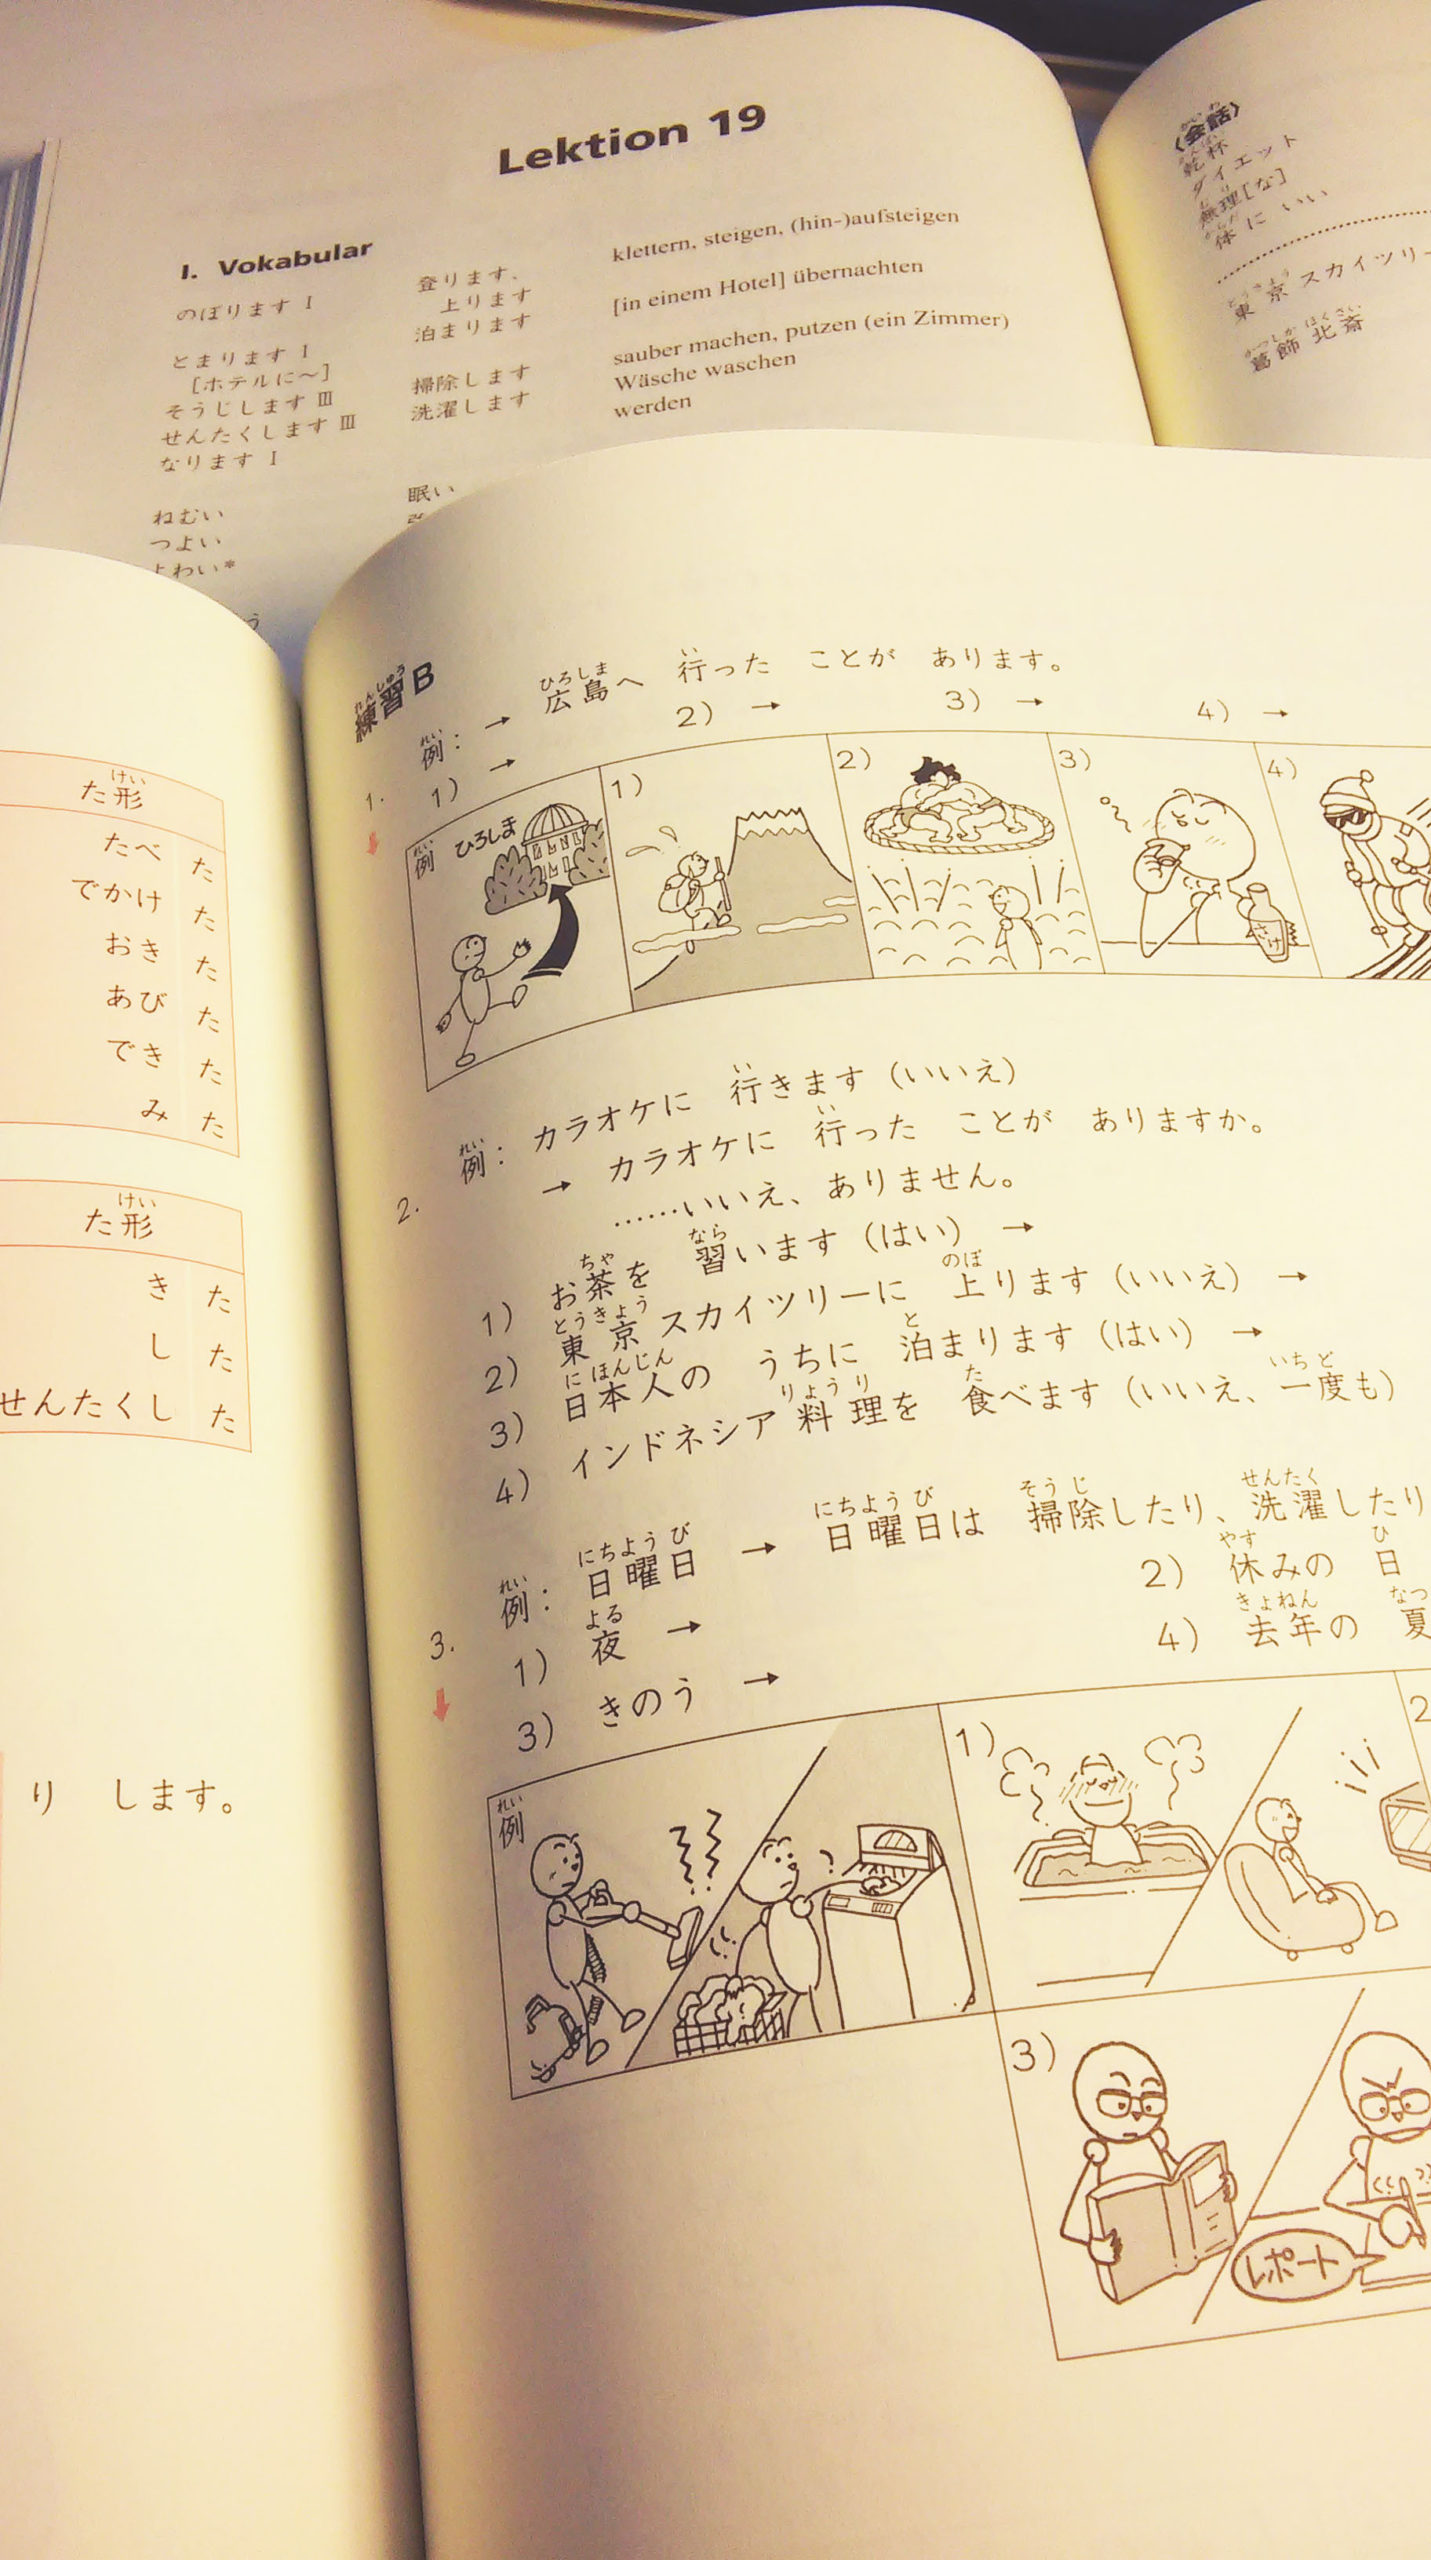 Lektion 19
I. Vokabular
のぼります Ⅰ 登ります、 klettern, steigen, (hin-)aufsteigen
上ります
とまります Ⅰ 泊まります [in einem Hotel] übernachten
[ホテルに～]
そうじします Ⅲ 掃除します sauber machen, putzen (ein Zimmer)
せんたくします Ⅲ 洗濯します Wäsche waschen
なります Ⅰ werden
ねむい 眠い
つよい
よわい*
う
〈会話〉
乾杯
ダイエット
無理[な]
体に いい
東京 スカイツリー
葛飾 北斎
た形
たべ た
でかけ た
おき た
あび た
でき た
み た
た形
き た
し た
せんたくし た
り します。
練習B
1. 例： → 広島へ 行った ことが あります。
1） → 2） → 3） → 4） →
例 ひろしま 1） 2） 3） さけ 4）
2. 例： カラオケに 行きます（いいえ）
→ カラオケに 行った ことが ありますか。
……いいえ、ありません。
1） お茶を 習います（はい） →
2） 東京スカイツリーに 上ります（いいえ） →
3） 日本人の うちに 泊まります（はい） →
4） インドネシア料理を 食べます（いいえ、一度も）
3. 例： 日曜日 → 日曜日は 掃除したり、洗濯したり
1） 夜 → 2） 休みの 日
3） きのう → 4） 去年の 夏
例 1） 2
3） レポート